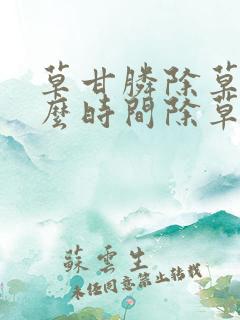 草甘膦除草
麼時間除草
蘇雲生
未经同意禁止转载